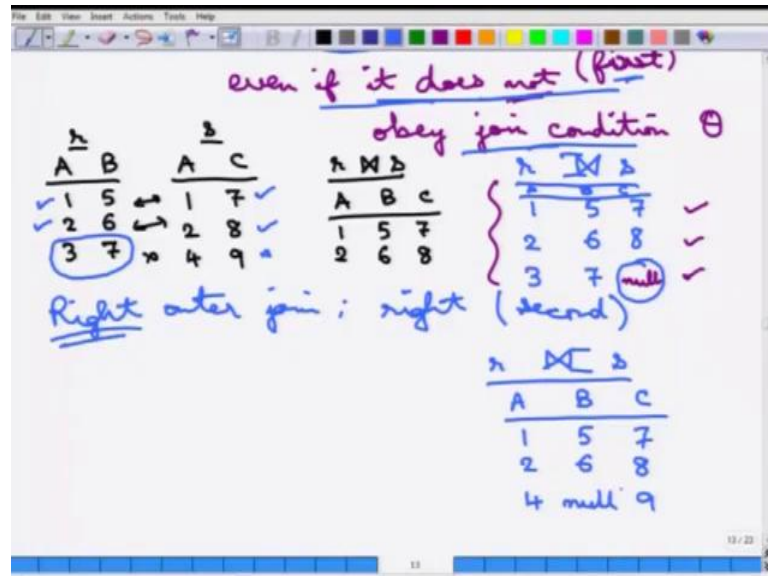 File Edit View Insert Actions Tools Help
even if it does not (first)
obey join condition θ
r s
A B A C r ⋈ s r ⟕ s
1 5 ↔ 1 7 A B C A B C
2 6 ↔ 2 8 1 5 7 1 5 7
3 7 4 9 2 6 8 2 6 8
3 7 null
Right outer join ; right (second)
r ⟖ s
A B C
1 5 7
2 6 8
4 null 9
13 / 23
13